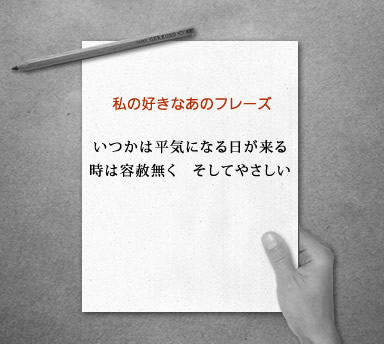 私の好きなあのフレーズ
いつかは平気になる日が来る
時は容赦無く　そしてやさしい